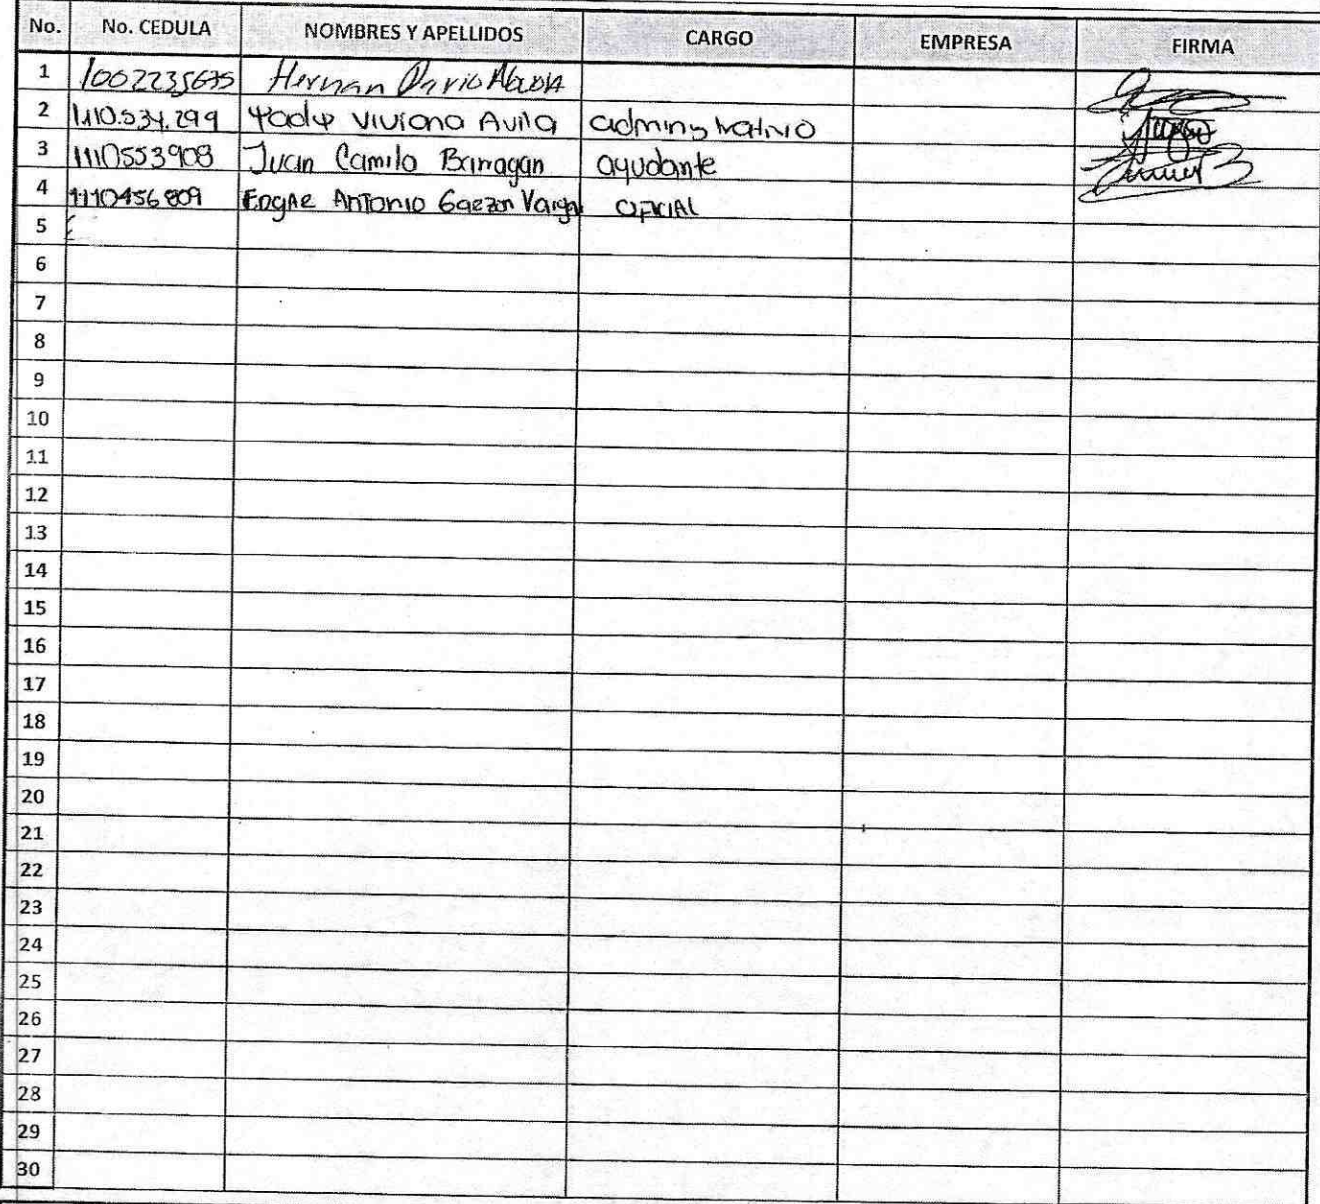 No. No. CEDULA NOMBRES Y APELLIDOS CARGO EMPRESA FIRMA
1 1002235675 Hernan Dario
2 1110.534.299 Yady Viviana Avila administrativo
3 1110553908 Juan Camilo Barragan ayudante
4 1110456809 Edgar Antonio Garzon Vargas OFICIAL
5
6
7
8
9
10
11
12
13
14
15
16
17
18
19
20
21
22
23
24
25
26
27
28
29
30